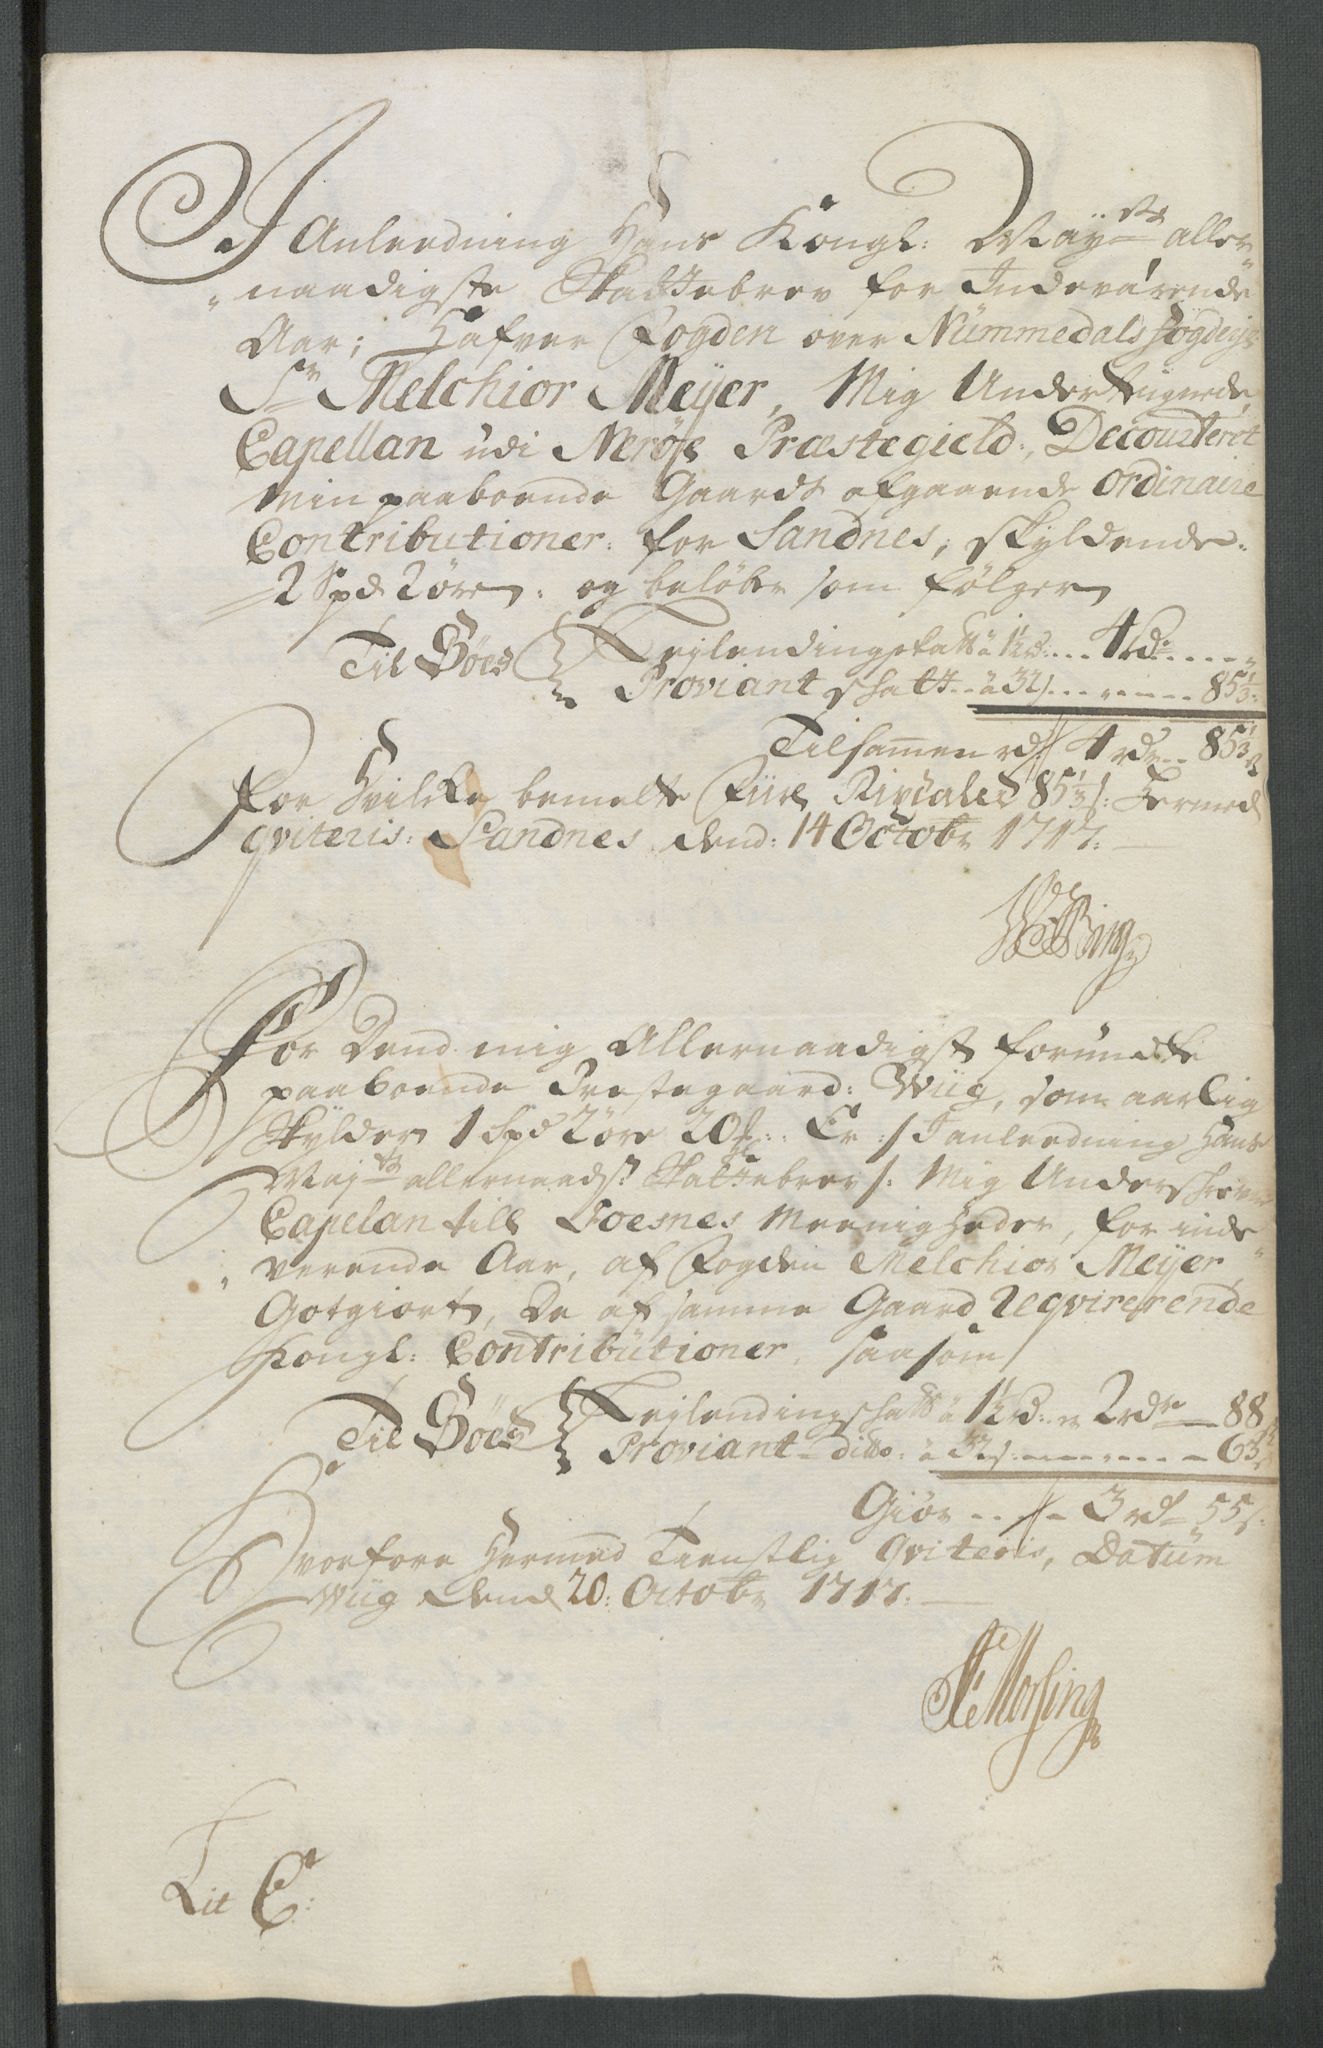 I Anledning Hans Kongl: Maÿts aller
naadigste Skattebrev for Indeværende
Aar; Hafver Fogden over Nummedals fogderje
Sr Melchior Meÿer, Mig Undertegnede
Capellan udi Nerøe Præstegield, Decourterit
min paaboende Gaards afgaaende Ordinaire
Contributioner: for Sandnes, skyldende
2 Spd 2 öre: og beløber som følger
Til Böes { Leylendingskatt à 1½ rd: .... 4 rdr ....
Proviant skatt .. à 32 s .... 85⅓
Tilsamen rd // 4 rdr .. 85⅓ s
For Hvilke bemelte Fiire Rixdaler 85⅓ s: Hermed
qviteris: Sandnes dend: 14 Octobr 1717:
Bing
For Dend mig Allernaadigst forundte
paaboende Prestegaard: Wiig, som aarlig
Skylder 1 Spd 2 öre 20 : Er /: I anledning Hans
Majts allernaadst Skattebrev :/ Mig Underskrevne
Capelan till Foesnes Meenigheder, for inde
verende Aar, af Fogden Melchior Meÿer
Gotgiort, De af samme Gaard Reqvirerende
Kongl: Contributioner, saasom
Til Böes { Leylendingskatt à 1½ rd: er 2 rdr — 88
Proviant ditto: à 32 s: ........ 63
Giör .. // 3 rdr 55 s:
Hvorfore Hermed Tienstlig Qviteris, Datum
Wiig dend 20: Octobr 1717:
Morsing
Lit C: